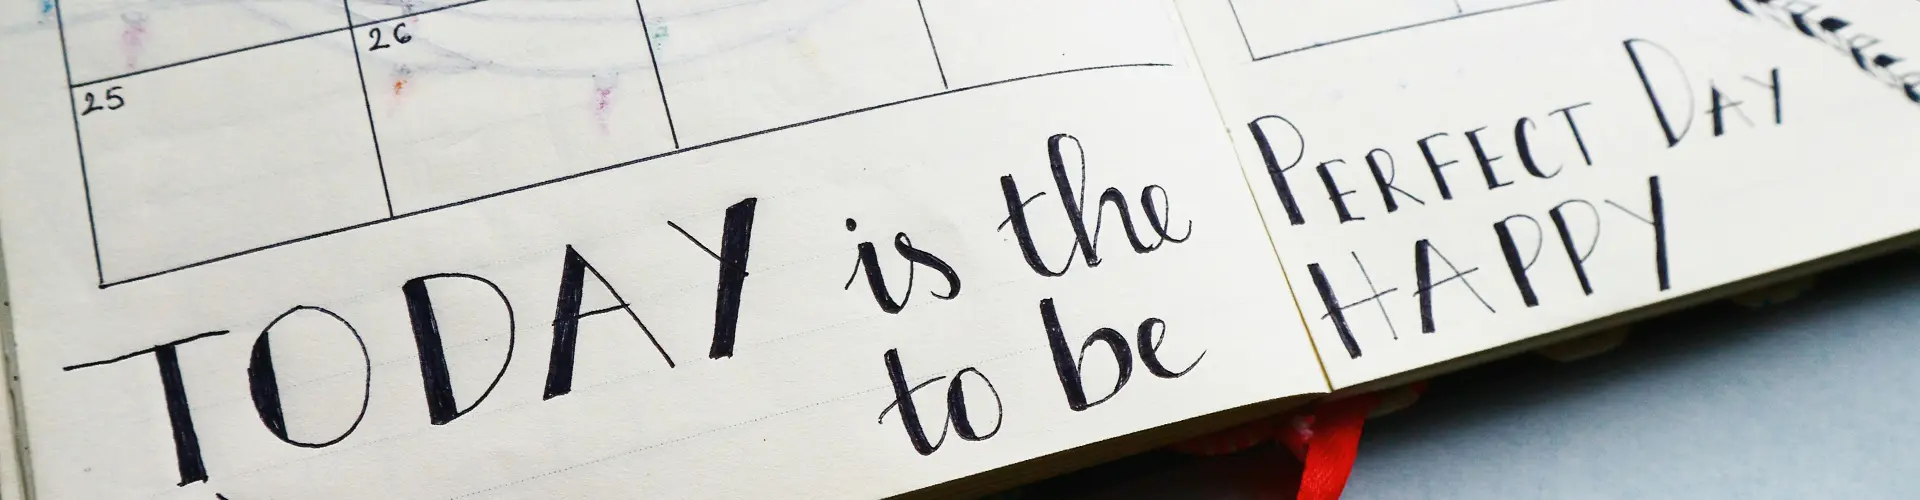 26
25
TODAY is the PERFECT DAY
to be HAPPY